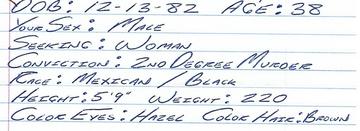 DOB: 12-13-82 AGE: 38
YOUR SEX: MALE
SEEKING: WOMAN
CONVICTION: 2ND DEGREE MURDER
RACE: MEXICAN / BLACK
HEIGHT: 5'9" WEIGHT: 220
COLOR EYES: HAZEL COLOR HAIR: BROWN